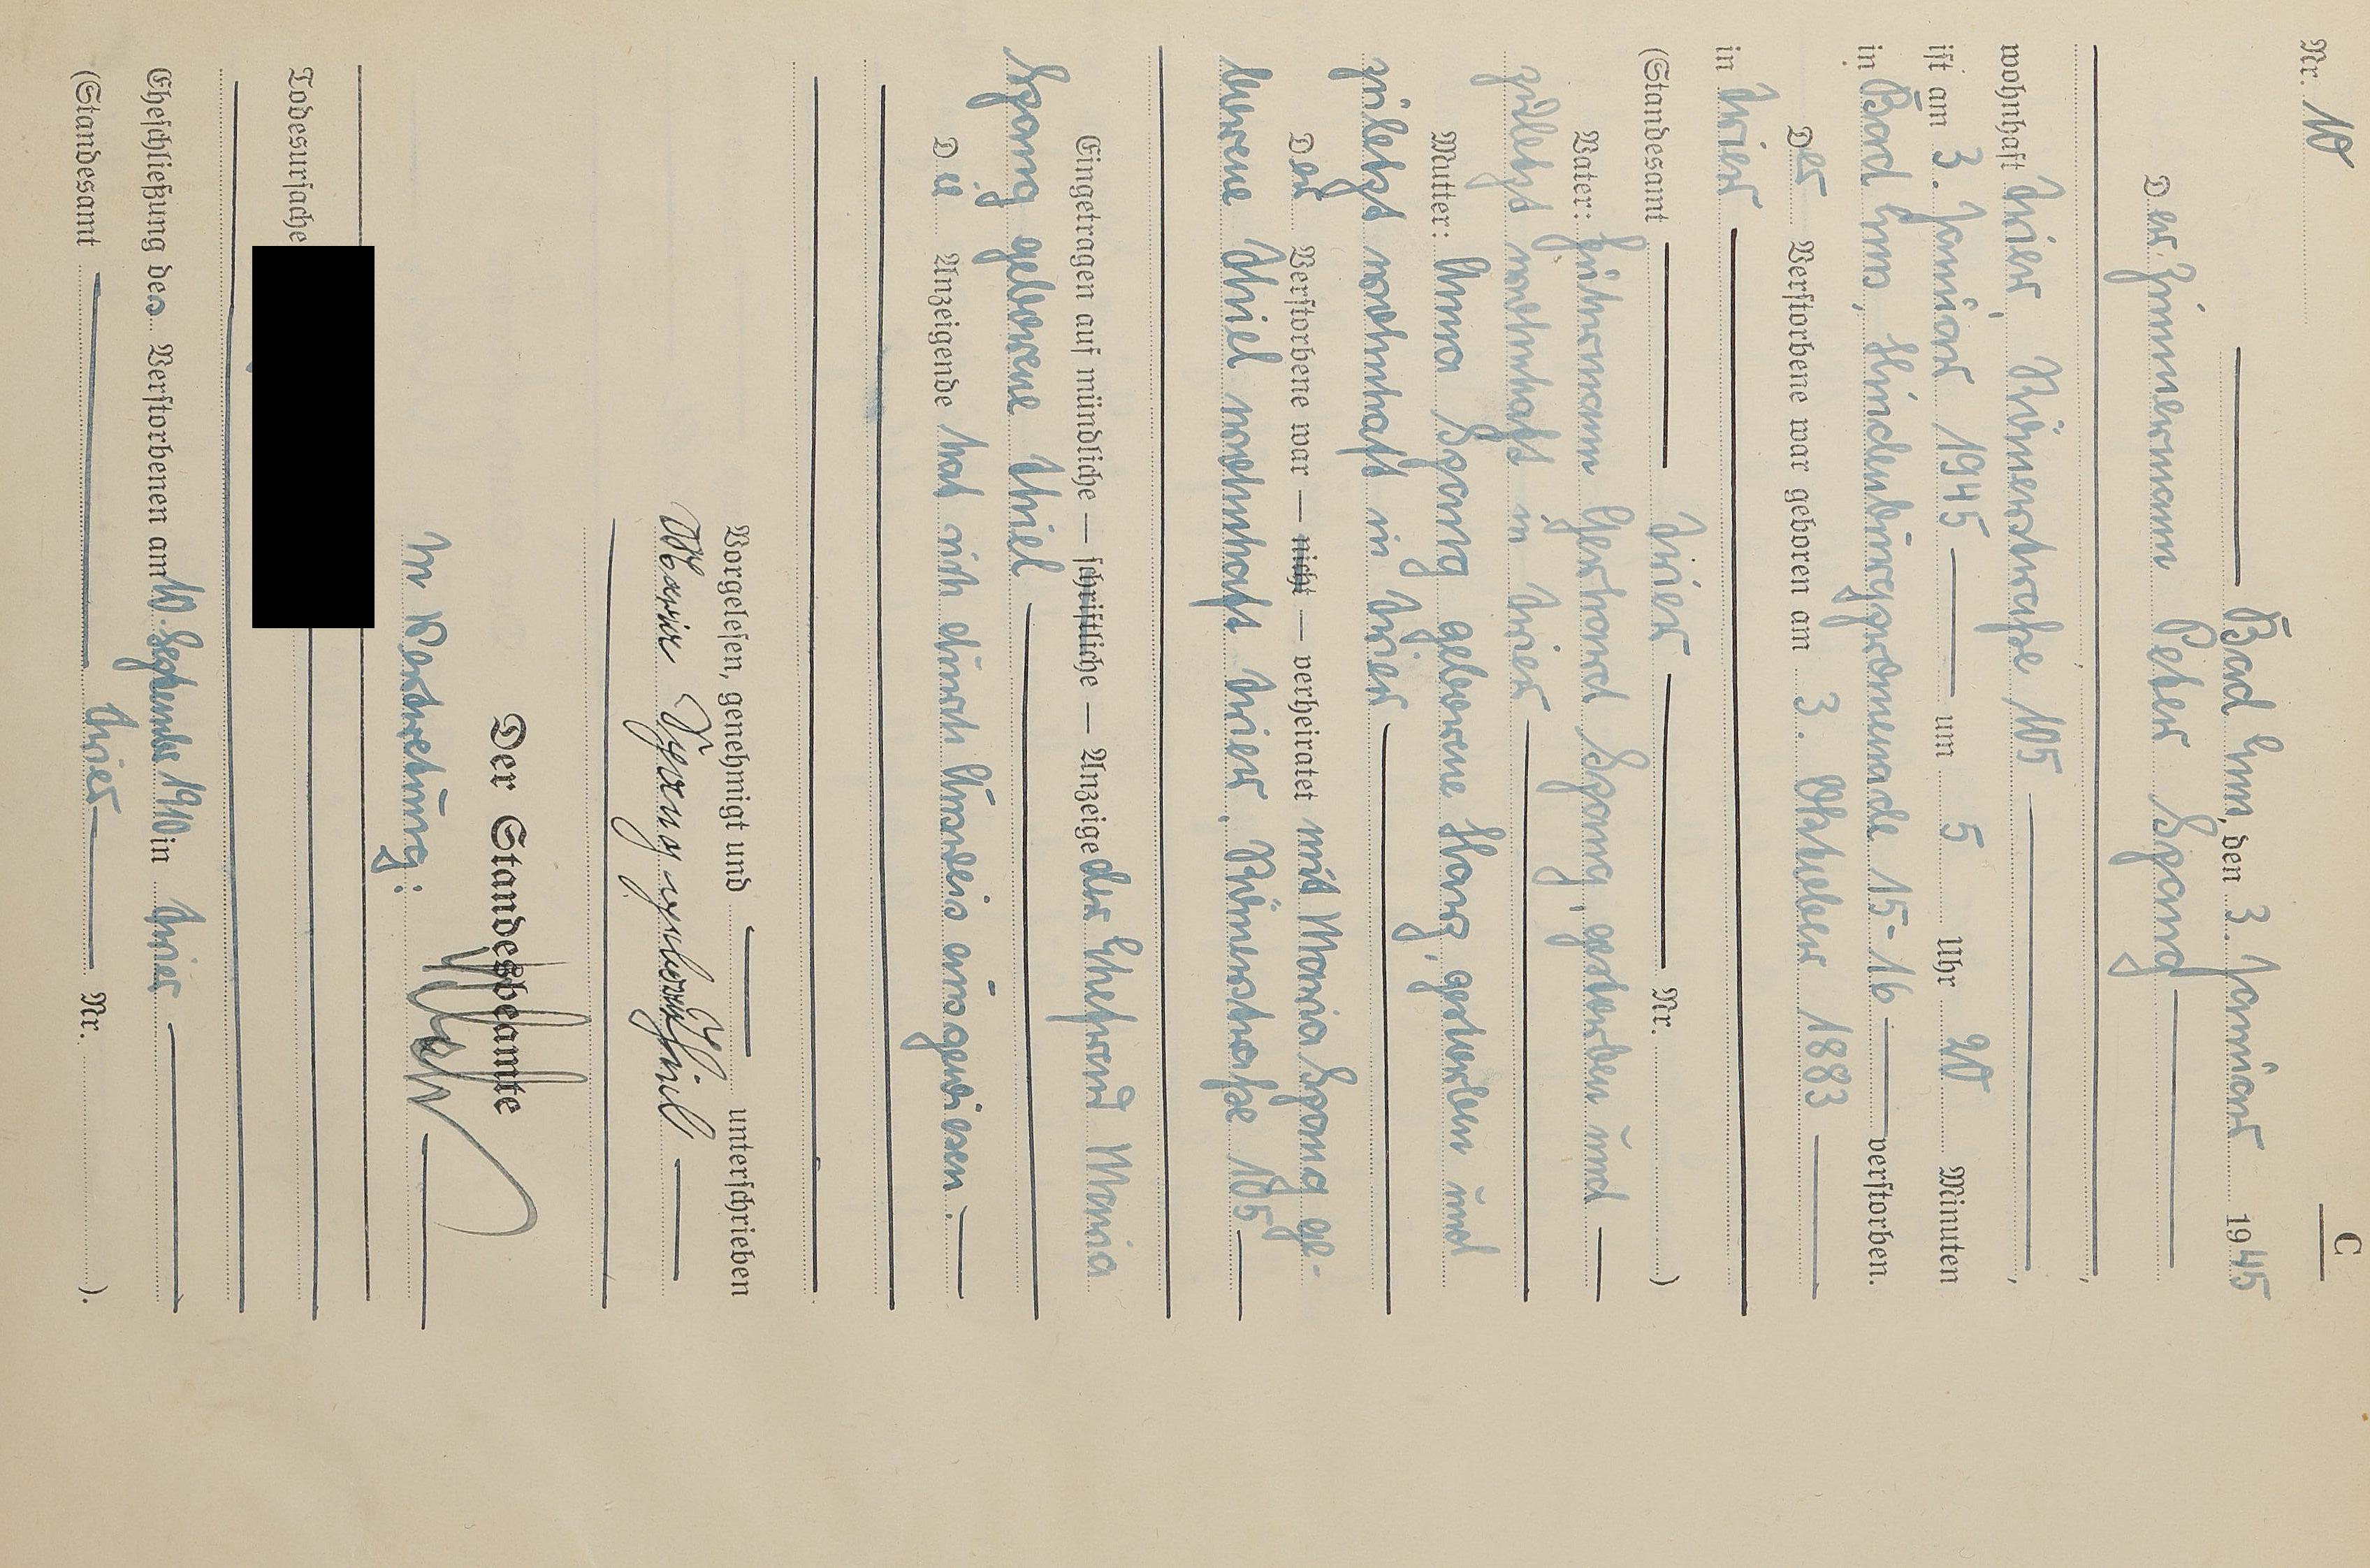 C
Nr. 10
Bad Ems, den 3. Januar 1945
Der Zimmermann Peter Spang
wohnhaft Trier, Römerstraße 105,
ist am 3. Januar 1945 um 5 Uhr 20 Minuten
in Bad Ems, Hindenburgpromenade 15-16 verstorben.
Der Verstorbene war geboren am 3. Oktober 1883
in Trier
(Standesamt Trier Nr. )
Vater: Fuhrmann Gerhard Spang, gestorben und
zuletzt wohnhaft in Trier
Mutter: Anna Spang geborene, gestorben und
zuletzt wohnhaft in Trier
Der Verstorbene war — nicht — verheiratet mit Maria Spang ge-
borene Thiel wohnhaft Trier, Römerstraße 105
Eingetragen auf mündliche — schriftliche — Anzeige der Ehefrau Maria
Spang geborene Thiel
Die Anzeigende hat sich durch Ausweis ausgewiesen.
Vorgelesen, genehmigt und unterschrieben
Maria Spang geborene Thiel
Der Standesbeamte
In Vertretung:
Todesursache
Eheschließung des Verstorbenen am 10. September 1910 in Trier
(Standesamt Trier Nr. ).